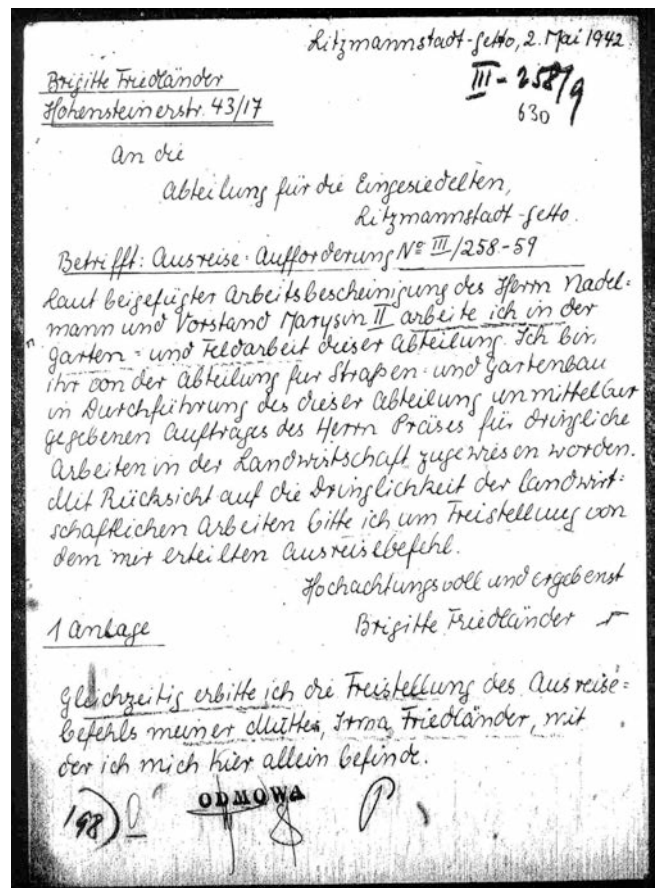 Litzmannstadt-Getto, 2. Mai 1942.
Brigitte Friedländer
Hohensteinerstr. 43/17
III - 258/9
630
An die
Abteilung für die Eingesiedelten,
Litzmannstadt-Getto.
Betrifft: Ausreise-Aufforderung No III/258-59
Laut beigefügter Arbeitsbescheinigung des Herrn Nadel-
mann und Vorstand Marysin II arbeite ich in der
Garten- und Feldarbeit dieser Abteilung. Ich bin
ihr von der Abteilung für Straßen- und Gartenbau
in Durchführung des dieser Abteilung unmittelbar
gegebenen Auftrages des Herrn Präses für dringliche
Arbeiten in der Landwirtschaft zugewiesen worden.
Mit Rücksicht auf die Dringlichkeit der landwirt-
schaftlichen Arbeiten bitte ich um Freistellung von
dem mir erteilten Ausreisebefehl.
Hochachtungsvoll und ergebenst
Brigitte Friedländer
1 Anlage
Gleichzeitig erbitte ich die Freistellung des Ausreise-
befehls meiner Mutter, Irma Friedländer, mit
der ich mich hier allein befinde.
ODMOWA
198)